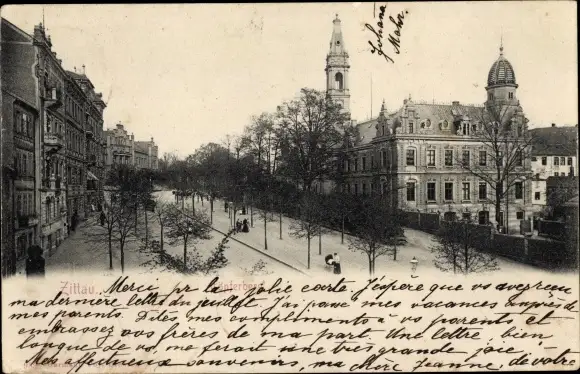 Johana
Mahr.
Zittau.
Töpferberg.
Merci pr la jolie carte, j'espère que vs avez reçu
ma dernière lettre du
J'ai passé mes vacances auprès de
mes parents. Dites mes compliments à vos parents et
embrassez vos frères de ma part. Une lettre bien
longue de vs, me ferait une très grande joie –
Mes affectueux souvenirs, ma chère Jeanne, de votre